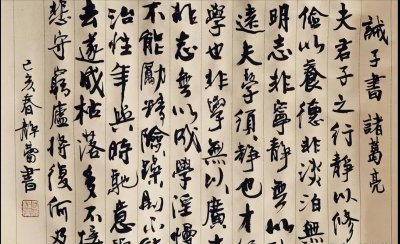 誡子書 諸葛亮
夫君子之行靜以修
儉以養德非淡泊無
明志非寧靜無以
遠夫學須靜也才
學也非學無以廣才
非志無以成學淫慢
不能勵精險躁則不
治性年與時馳意
去遂成枯落多不接
悲守窮廬將復何及
己亥春靜蕾書